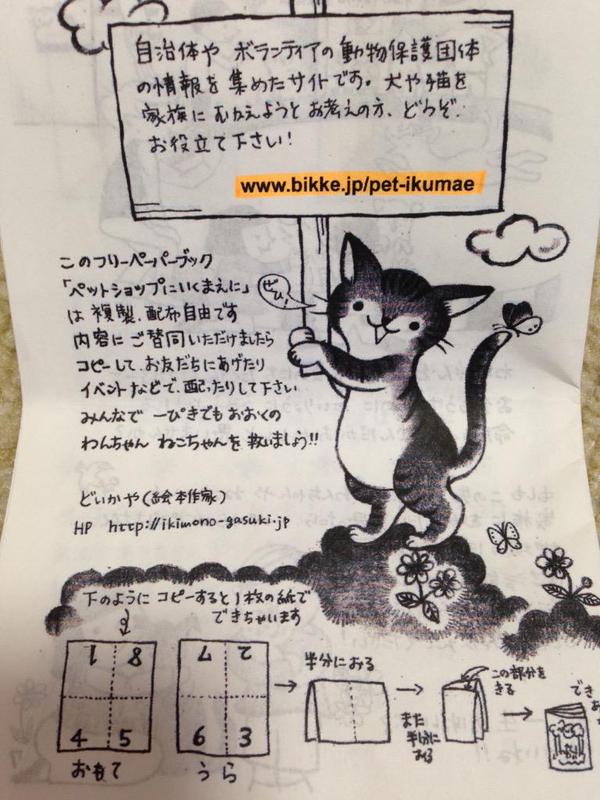 自治体や ボランティアの動物保護団体
の情報を集めたサイトです。犬や猫を
家族にむかえようとお考えの方、どうぞ
お役立て下さい!
www.bikke.jp/pet-ikumae
このフリーペーパーブック
「ペットショップにいくまえに」
は 複製、配布自由です
内容にご賛同いただけましたら
コピーして、お友だちにあげたり
イベントなどで 配ったりして下さい
みんなで 一ぴきでもおおくの
わんちゃん ねこちゃんを 救いましょう!!
ぜひ!
どいかや(絵本作家)
HP http://ikimono-gasuki.jp
下のように コピーすると1枚の紙で
できちゃいます
1 8
4 5
おもて
7 2
6 3
うら
半分におる
また
半分に
おる
この部分を
きる
でき